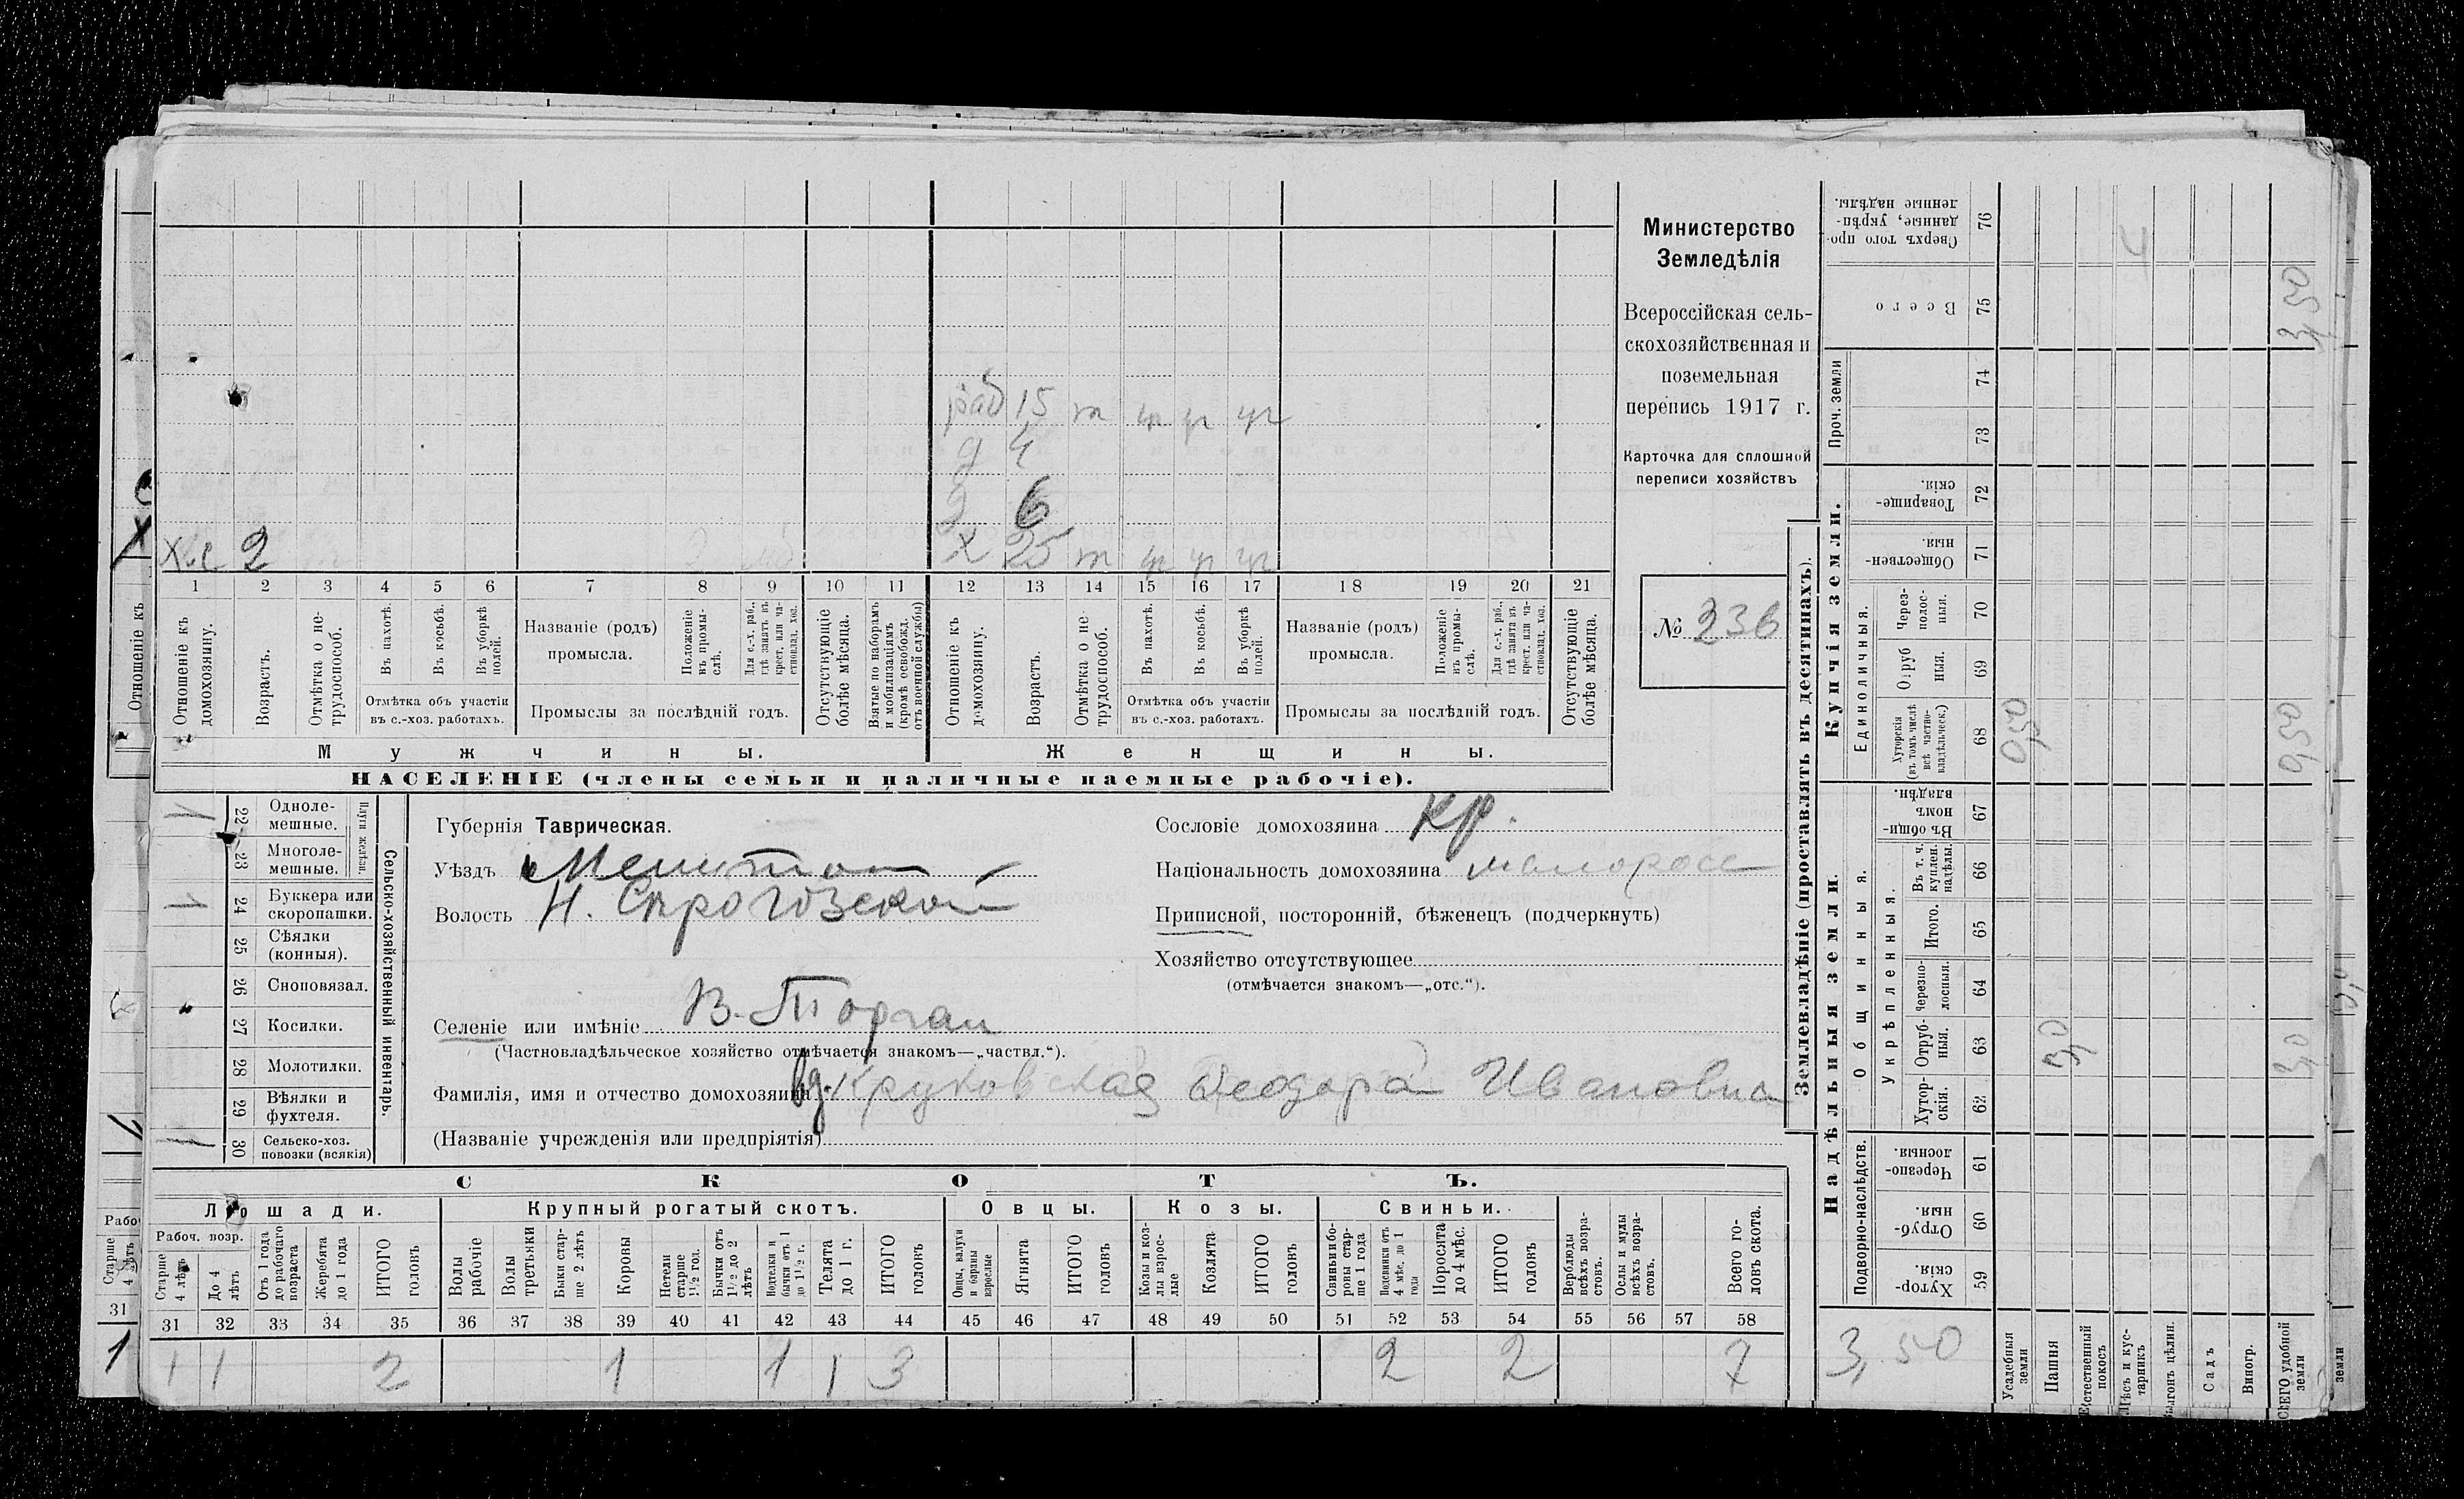 раб 15 т уп уп уп
д 4
д 6
х 25 т уп уп уп
2
1 2 3 4 5 6 7 8 9 10 11 12 13 14 15 16 17 18 19 20 21
Отношеніе къ домохозяину.
Возрастъ.
Отмѣтка о не-
трудоспособ.
Въ пахотѣ.
Въ косьбѣ.
Въ уборкѣ
полей.
Отмѣтка объ участіи
въ с.-хоз. работахъ.
Названіе (родъ)
промысла.
Положеніе
въ промы-
слѣ.
Для с.-х. раб.,
гдѣ занятъ въ
крест. или ча-
стновлад. хоз.
Промыслы за послѣдній годъ.
Отсутствующіе
болѣе мѣсяца.
Взятые по наборамъ
и мобилизаціямъ
(кромѣ освобожд.
отъ военной службы)
Отношеніе къ
домохозяину.
Возрастъ.
Отмѣтка о не
трудоспособ.
Въ пахотѣ.
Въ косьбѣ.
Въ уборкѣ
полей.
Отмѣтка объ участіи
въ с.-хоз. работахъ.
Названіе (родъ)
промысла.
Положеніе
въ промы-
слѣ.
Для с.-х. раб.,
гдѣ занята въ
крест. или ча-
стновлад. хоз.
Промыслы за послѣдній годъ.
Отсутствующіе
болѣе мѣсяца.
Мужчины.
Женщины.
НАСЕЛЕНІЕ (члены семьи и наличные наемные рабочіе).
Министерство
Земледѣлія
Всероссійская сель-
скохозяйственная и
поземельная
перепись 1917 г.
Карточка для сплошной
переписи хозяйствъ
№ 236
Сельско-хозяйственный инвентарь.
Плуги желѣзн.
22 Одноле-
мешные.
23 Многоле-
мешные.
24 Буккера или
скоропашки.
25 Сѣялки
(конныя).
26 Сноповязал.
27 Косилки.
28 Молотилки.
29 Вѣялки и
фухтеля.
30 Сельско-хоз.
повозки (всякія)
Губернія Таврическая.
Уѣздъ Мелитоп
Волость Н. Сѣрогозской
Селеніе или имѣніе В. Торгаи
(Частновладѣльческое хозяйство отмѣчается знакомъ—„частвл.“).
Фамилія, имя и отчество домохозяина вд. Круковская Феодора Ивановна
(Названіе учрежденія или предпріятія)
Сословіе домохозяина кр.
Національность домохозяина малоросс
Приписной, посторонній, бѣженецъ (подчеркнуть)
Хозяйство отсутствующее
(отмѣчается знакомъ—„отс.“).
СКОТЪ.
Лошади.
Рабоч. возр.
Старше
4 лѣтъ
До 4
лѣтъ
Отъ 1 года
до рабочаго
возраста
Жеребята
до 1 года
ИТОГО
головъ
Крупный рогатый скотъ.
Волы
рабочіе
Волы
третьяки
Быки стар-
ше 2 лѣтъ
Коровы
Нетели
старше
1½ год.
Бычки отъ
1½ до 2
лѣтъ
Подтелки и
бычки отъ 1
до 1½ г.
Телята
до 1 г.
ИТОГО
головъ
Овцы.
Овцы, валухи
и бараны
взрослые
Ягнята
ИТОГО
головъ
Козы.
Козы и коз-
лы взрос-
лые
Козлята
ИТОГО
головъ
Свиньи.
Свиньи и бо-
ровы стар-
ше 1 года
Подсвинки отъ
4 мѣс. до 1
года
Поросята
до 4 мѣс.
ИТОГО
головъ
Верблюды
всѣхъ возра-
стовъ.
Ослы и мулы
всѣхъ возра-
стовъ.
Всего го-
ловъ скота.
31 32 33 34 35 36 37 38 39 40 41 42 43 44 45 46 47 48 49 50 51 52 53 54 55 56 57 58
1 1 2 1 1 1 3 2 2 7
Землевладѣніе (проставлять въ десятинахъ).
Надѣльныя земли.
Купчія земли.
Проч. земли
Подворно-наслѣдств.
Общинныя.
Укрѣпленныя.
Единоличныя.
Сверхъ того про-
данные, укрѣп-
ленные надѣлы. 76
Всего 75
74
73
Товарище-
скія. 72
Обществен-
ныя. 71
Через-
полос-
ныя. 70
Отруб
ныя. 69
Хуторскія
(въ томъ числѣ
всѣ частно-
владѣльческ.) 68
Въ общи-
номъ
владѣн. 67
Въ т. ч.
куплен.
надѣлы. 66
Итого. 65
Черезпо-
лосныя. 64
Отруб-
ныя. 63
Хутор-
скія. 62
Черезпо-
лосныя. 61
Отруб-
ныя. 60
Хутор-
скія. 59
3,50
0,50
0,50
3,0
3,0
3,50
Усадебныя
земли
Пашня
Естественный
покосъ
Лѣсъ и кус-
тарникъ
Выгонъ цѣлин.
Садъ
Виногр.
ВСЕГО удобной
земли
земли
Отношеніе къ
Старше
4 лѣтъ
31
1